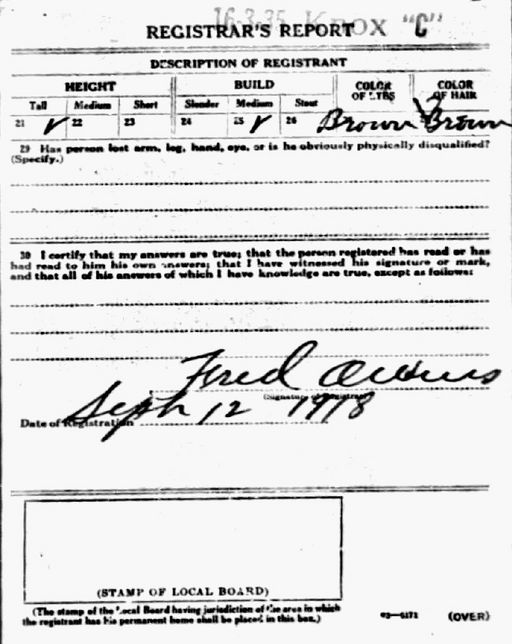 16-3-35 K BOX "C"
REGISTRAR'S REPORT
DESCRIPTION OF REGISTRANT
HEIGHT BUILD COLOR OF EYES COLOR OF HAIR
Tall Medium Short Slender Medium Stout
21 ✓ 22 23 24 25 ✓ 26 Brown Brown
29 Has person lost arm, leg, hand, eye, or is he obviously physically disqualified?
(Specify.)
30 I certify that my answers are true; that the person registered has read or has
had read to him his own answers; that I have witnessed his signature or mark,
and that all of his answers of which I have knowledge are true, except as follows:
Fred
(Signature of Registrar)
Date of Registration Sept 12 1918
(STAMP OF LOCAL BOARD)
(The stamp of the Local Board having jurisdiction of the area in which
the registrant has his permanent home shall be placed in this box.)
03—6171 (OVER)